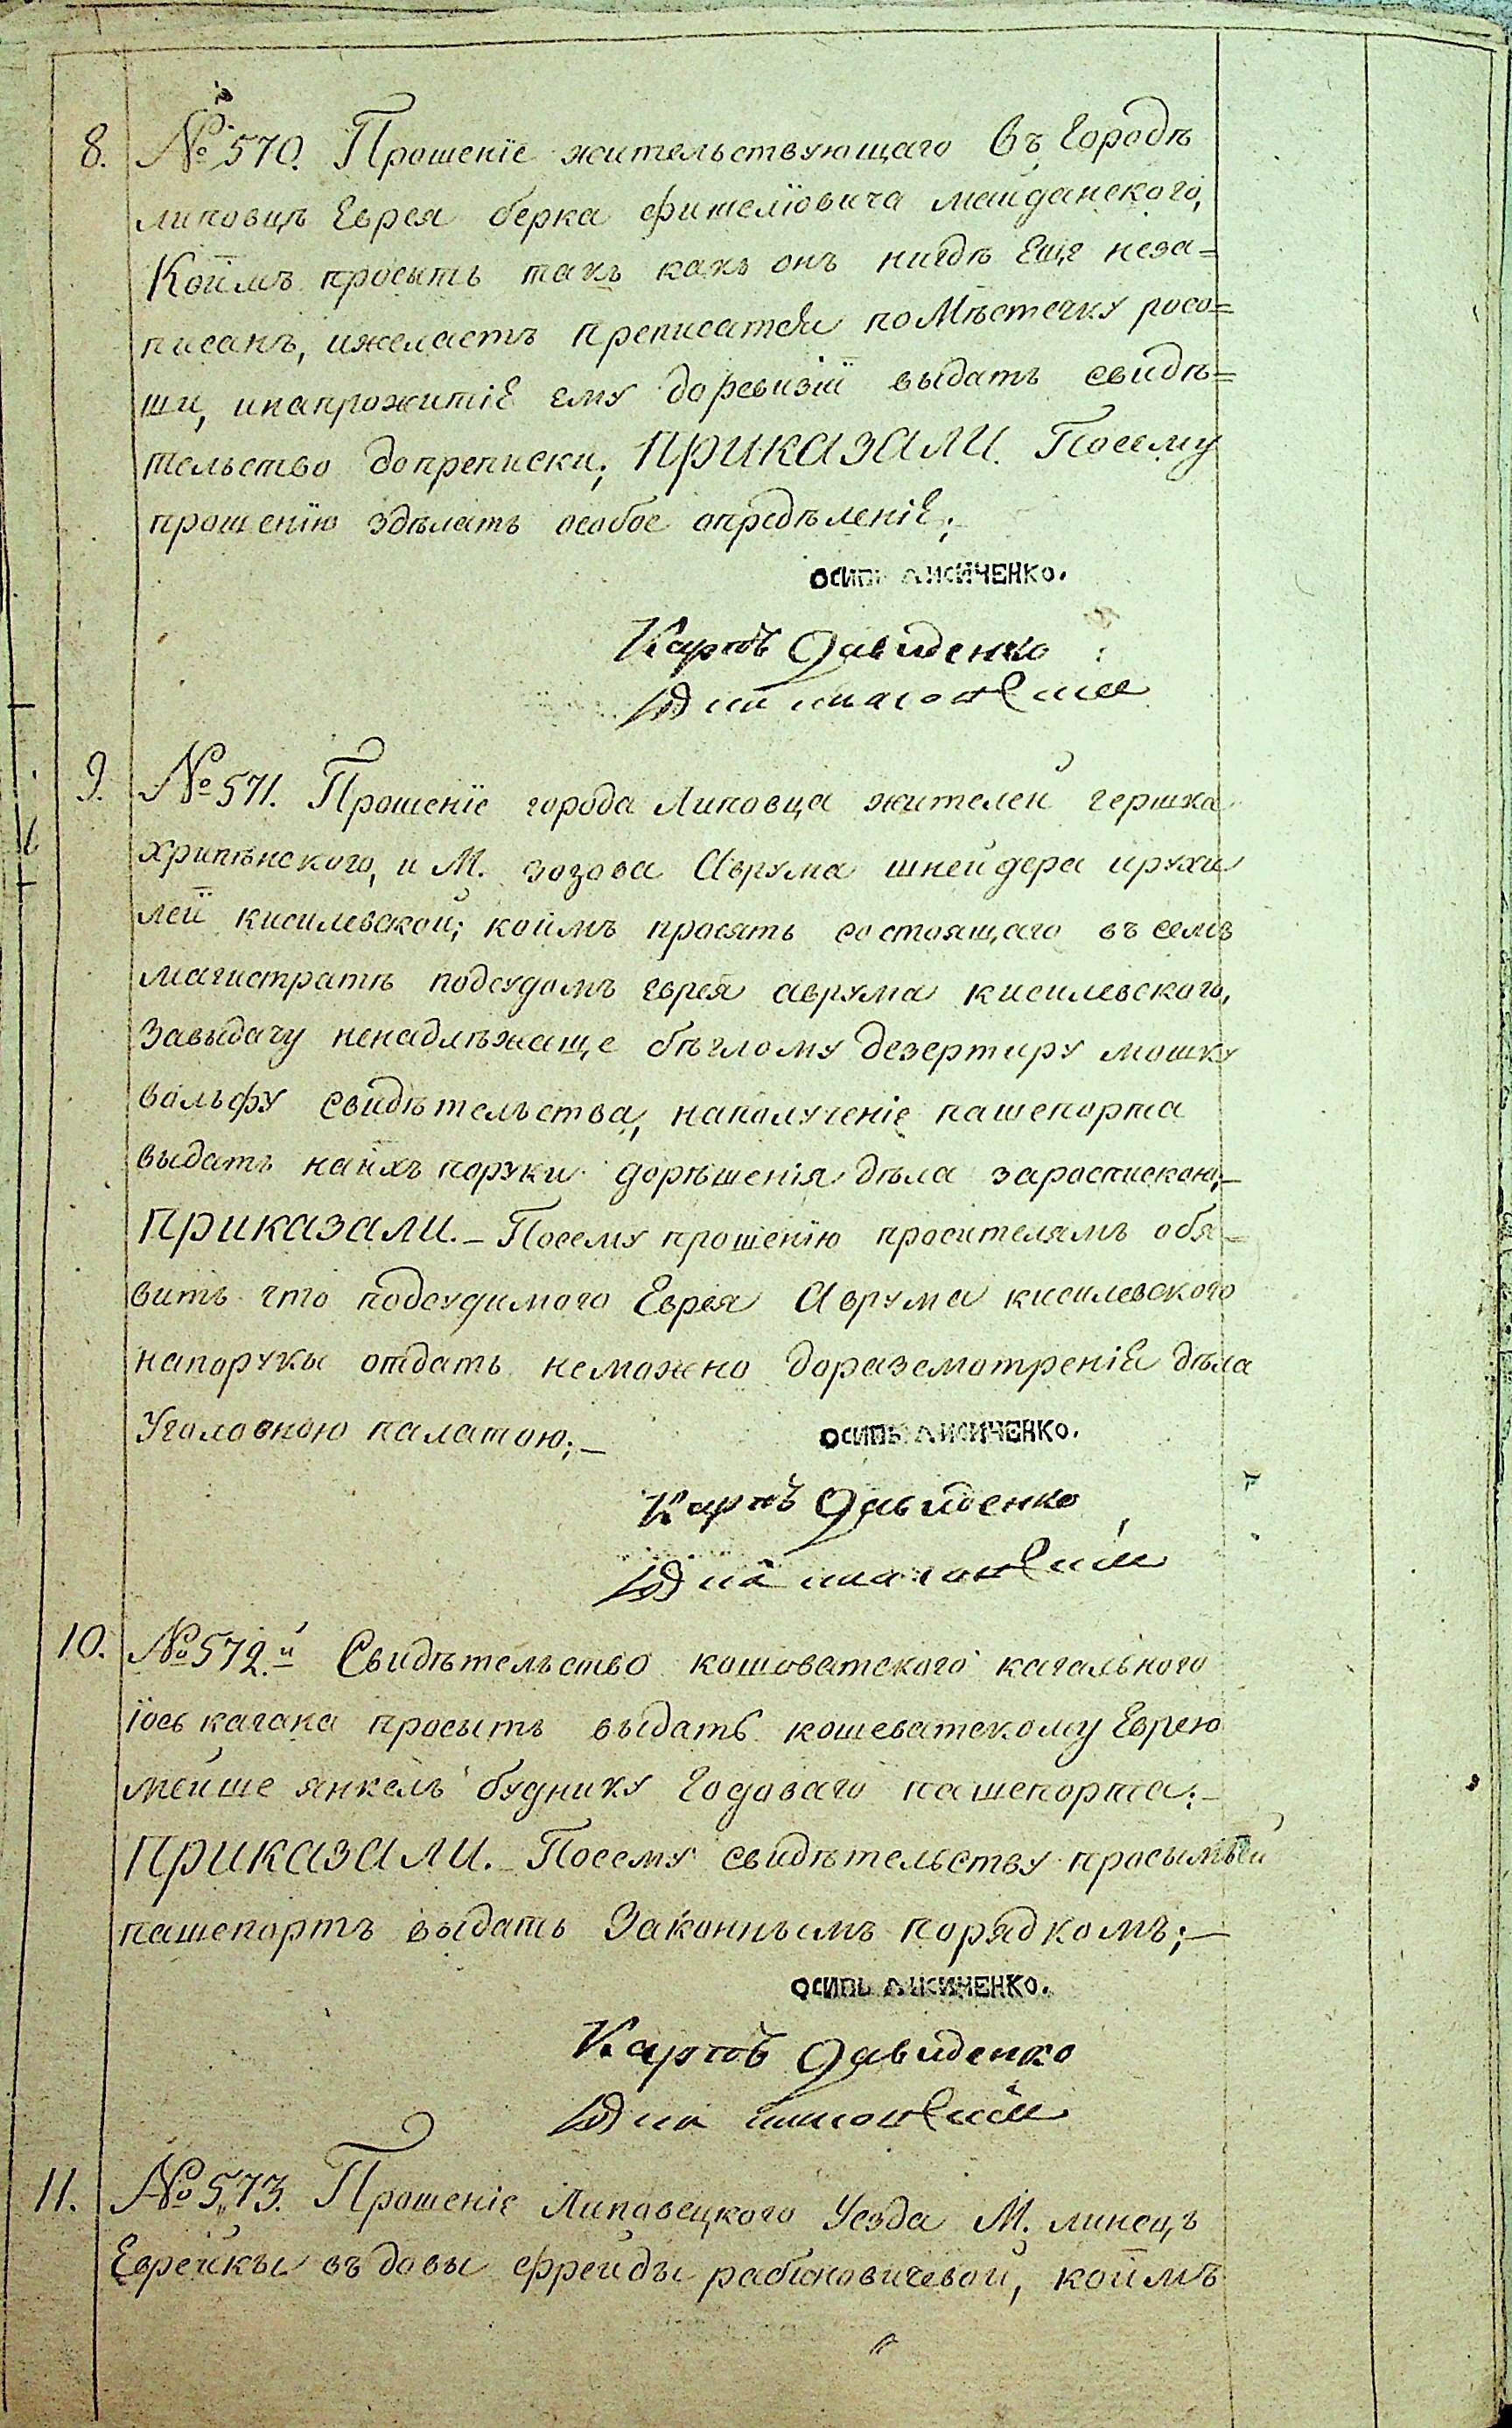 8. № 570. Прошенїе жительствующаго въ городѣ
липовцѣ Еврея берка фишелїовича майданского,
Коимъ просыть такъ какъ онъ нигдѣ Еще неза=
писанъ, ижелаетъ преписатся поМѣстечку росо=
ши, инапрожитіЕ ему доревизіи выдать свидѣ=
тельство допреписки; ПРИКАЗАЛИ. Посему
прошенїю здѣлать особое опредѣленіЕ;
ОСИПЪ ЛИСИЧЕНКО.
Карпъ Давиденко
9. № 571. Прошенїе города Липовца жителей гершка
хрипѣнского, и М. зозова Аврума шнейдера ирухи
лей кисилевской; коимъ просять состоящаго въ семъ
магистратѣ подсудомъ еврея аврума кисилевского,
Завыдачу ненадлѣжаще бѣглому дезертиру мошку
вольфу свидѣтельства, наполученіе пашепорта
выдать наихъ поруки дорѣшенія дѣла зароспискою;-
ПРИКАЗАЛИ.- Посему прошенію просителямъ обя-
вить что подсудимого Еврея Аврума кисилевского
напоруки отдать неможно доразсмотреніЕ дѣла
Уголовною палатою;-
ОСИПЪ ЛИСИЧЕНКО.
Карпъ Давиденко
10. № 572.й Свидѣтельство кошоватского кагального
їось кагана просыть выдать кошеватскому Еврею
мейше янкель буднику годоваго пашепорта;-
ПРИКАЗАЛИ.- Посему свидѣтельству просымый
пашепортъ выдать Законнымъ порядкомъ;-
ОСИПЪ ЛИСИЧЕНКО.
Карпъ Давиденко
11. № 573. Прошеніе Липовецкого Уезда М. линецъ
Еврейкы въдовы фрейды рабиновичевой, коимъ